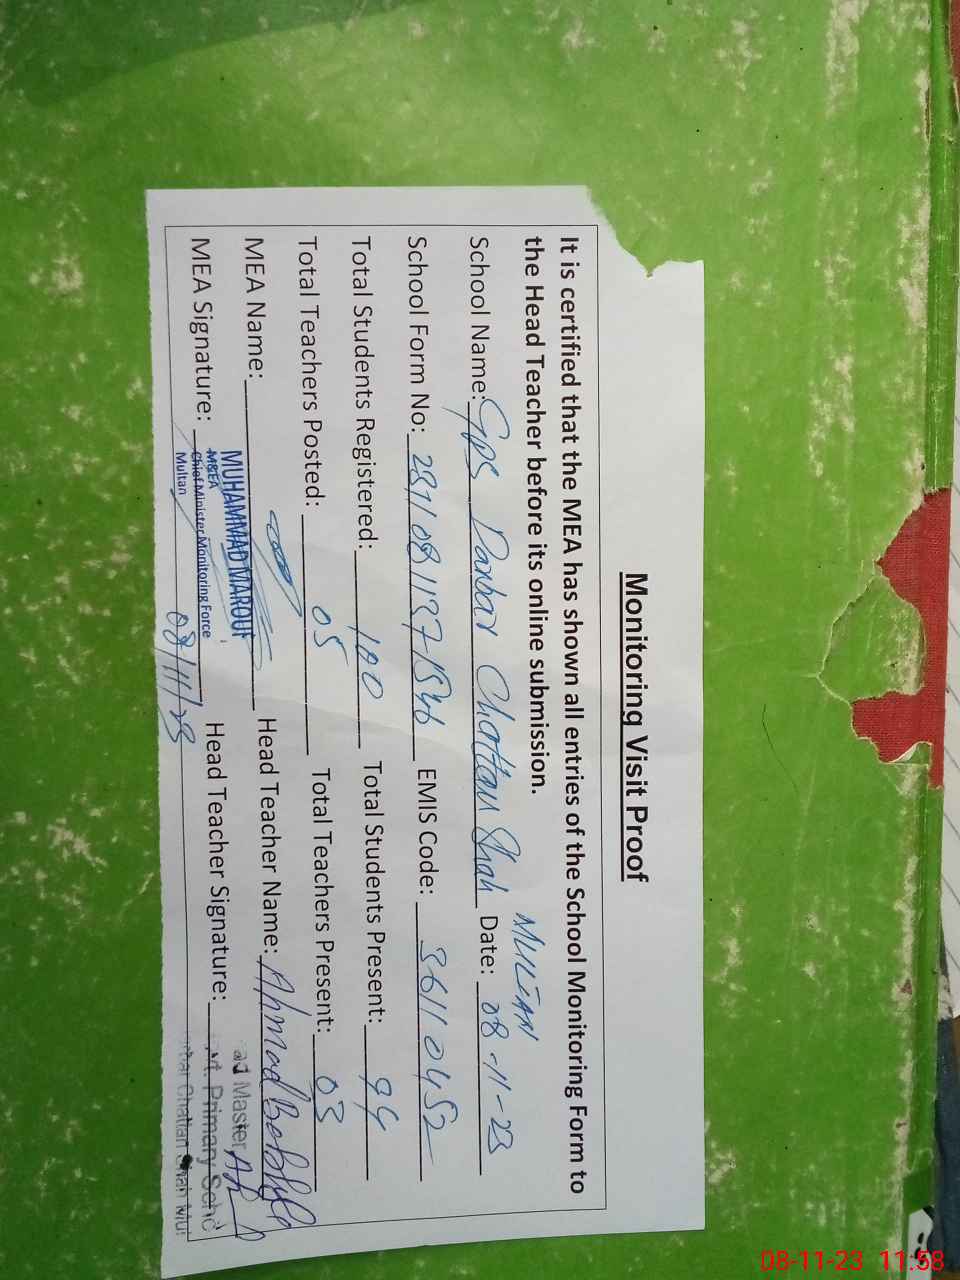 Monitoring Visit Proof
It is certified that the MEA has shown all entries of the School Monitoring Form to
the Head Teacher before its online submission.
MULTAN
School Name: GPS Darbar Chattan Shah Date: 08-11-23
School Form No: 28110811371546 EMIS Code: 36110452
Total Students Registered: 100 Total Students Present: 94
Total Teachers Posted: 05 Total Teachers Present: 03
MEA Name: Head Teacher Name: Ahmad
MUHAMMAD MAROUF
M&EA
Chief Minister Monitoring Force
Multan
MEA Signature: 08/11/23 Head Teacher Signature:
ad Master
vt. Primary Scho
rbar Chattan Shah Mul
08-11-23 11:58